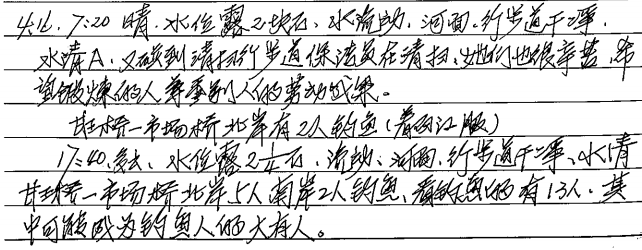 4.16. 7:20 晴. 水位露2块石、水流动、河面、行步道干净、
水清A. 又碰到清扫行步道保洁员在清扫、她们也很辛苦、希
望锻炼的人尊重别人的劳动成果。
甘王桥一市场桥北岸有2人钓鱼(着
17:40. 水位露2 1/4石、流动、河面、行步道干净、水清
甘王桥一市场桥北岸5人南岸2人钓鱼、看钓鱼的有13人. 其
中可能成为钓鱼人的大有人。